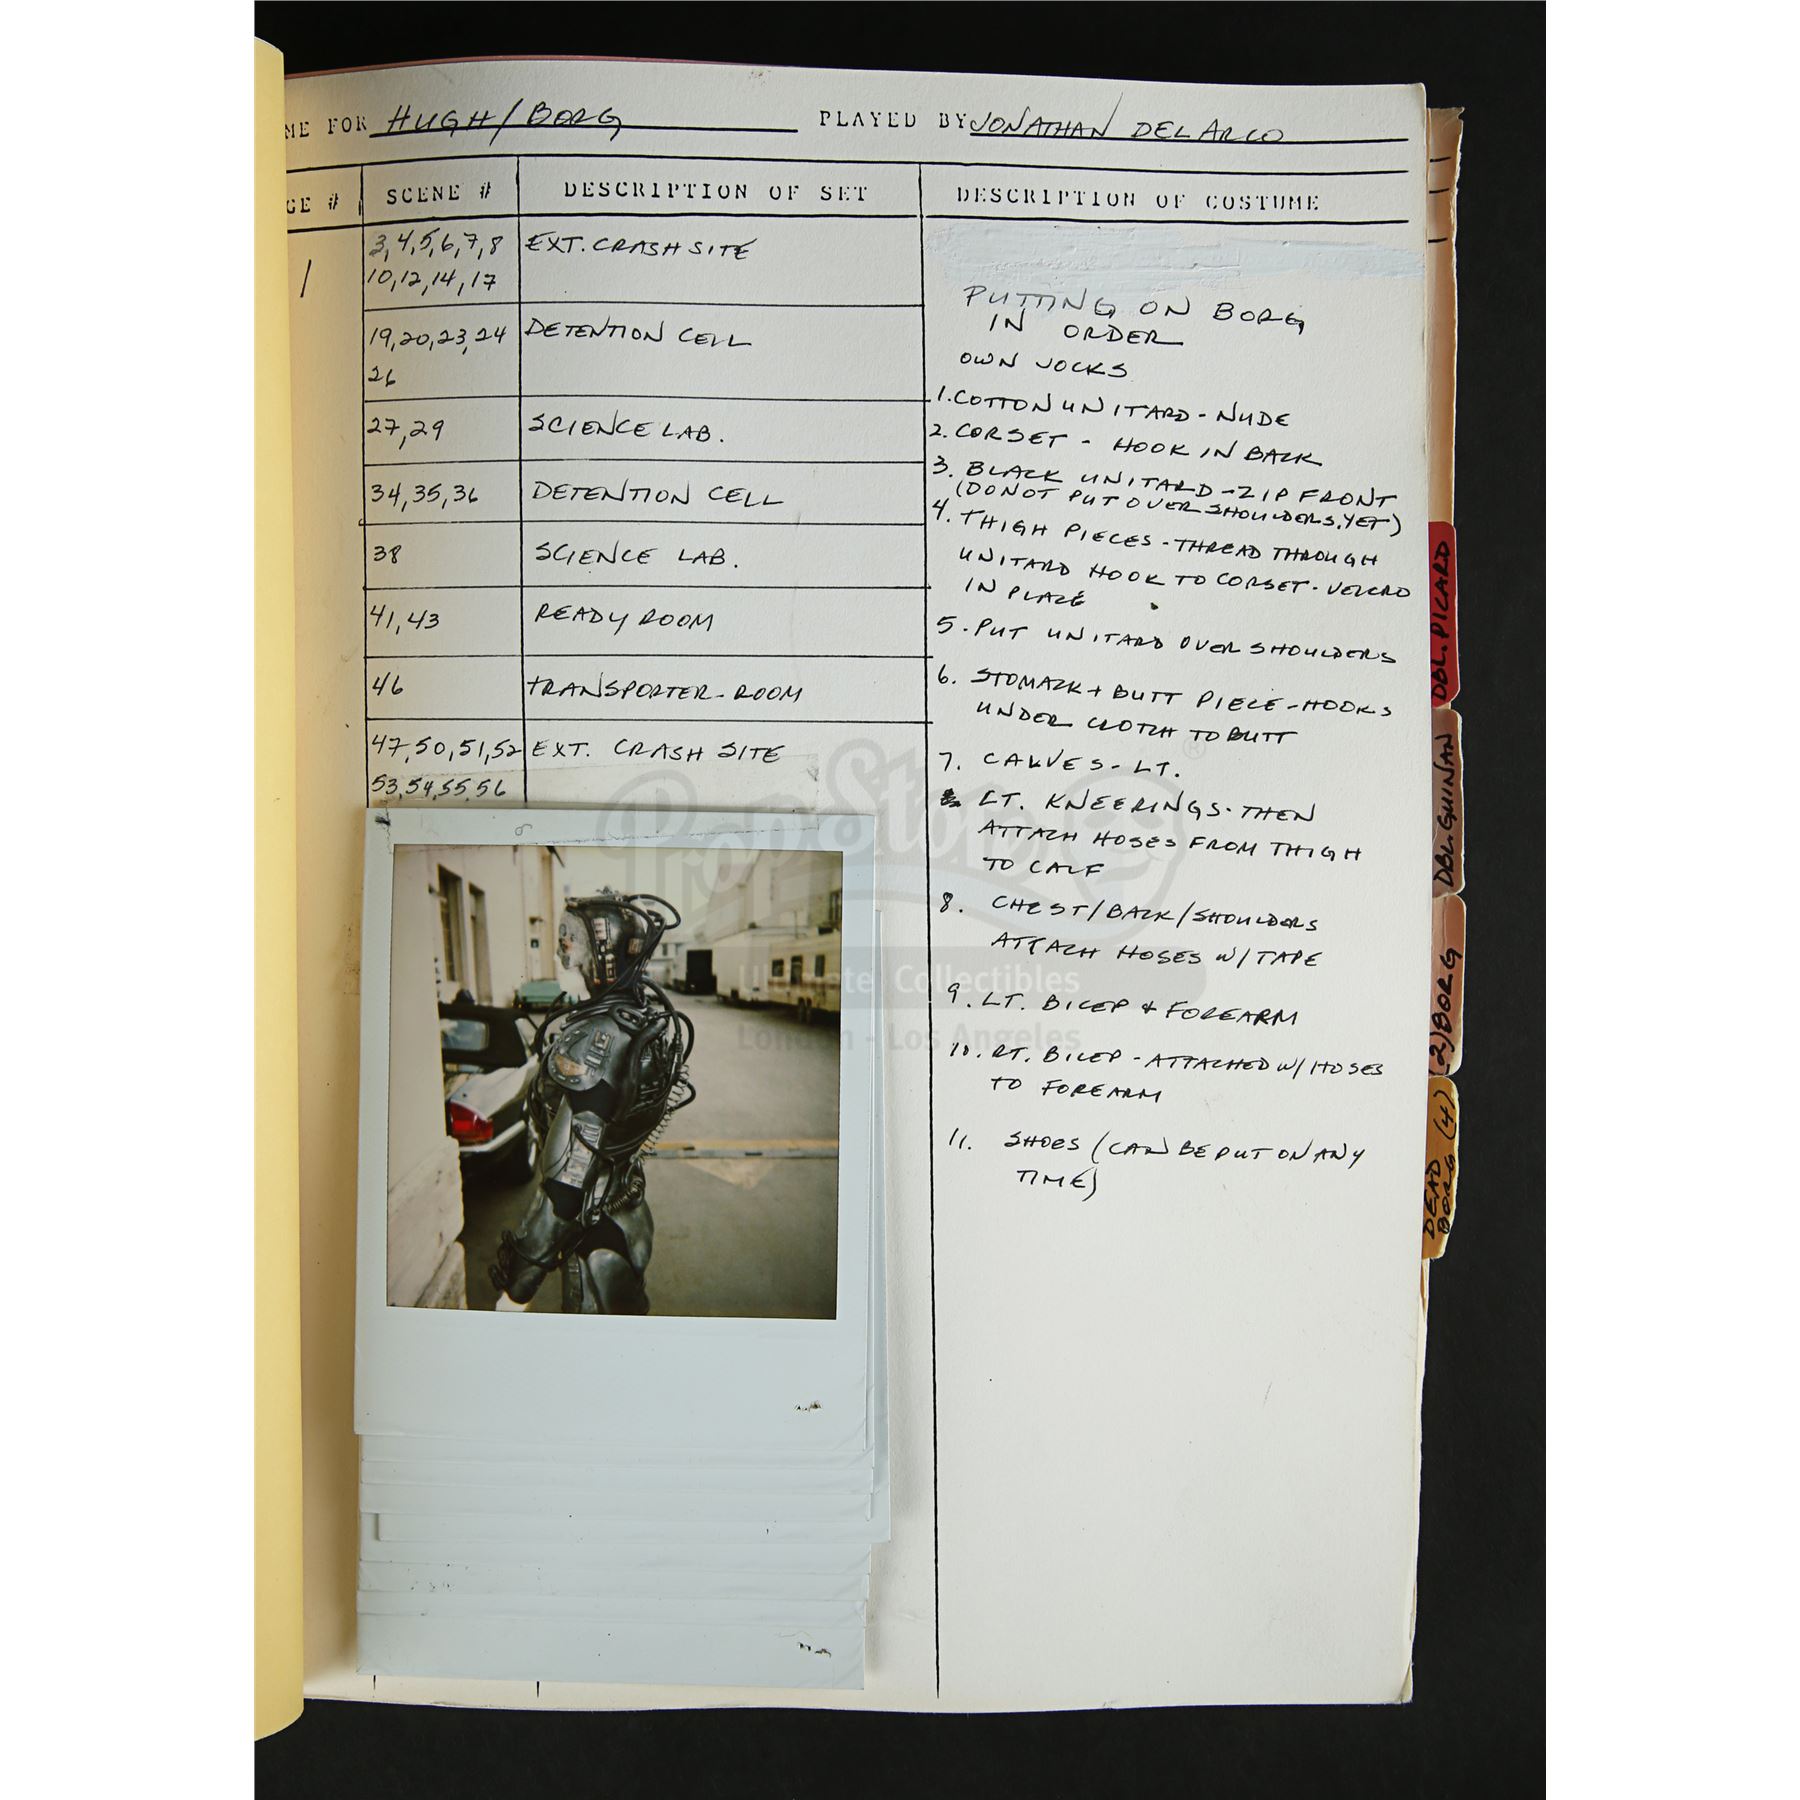 ME FOR HUGH/BORG PLAYED BY JONATHAN DEL ARCO
GE # SCENE # DESCRIPTION OF SET DESCRIPTION OF COSTUME
1
3,4,5,6,7,8 EXT. CRASH SITE
10,12,14,17
19,20,23,24 DETENTION CELL
26
27,29 SCIENCE LAB.
34,35,36 DETENTION CELL
38 SCIENCE LAB.
41,43 READY ROOM
46 TRANSPORTER-ROOM
47,50,51,52 EXT. CRASH SITE
53,54,55,56
PUTTING ON BORG
IN ORDER
OWN JOCKS
1. COTTON UNITARD - NUDE
2. CORSET - HOOK IN BACK
3. BLACK UNITARD - ZIP FRONT
(DO NOT PUT OVER SHOULDERS, YET)
4. THIGH PIECES - THREAD THROUGH
UNITARD HOOK TO CORSET - VELCRO
IN PLACE
5. PUT UNITARD OVER SHOULDERS
6. STOMACK + BUTT PIECE - HOOKS
UNDER CROTCH TO BUTT
7. CALVES - LT.
LT. KNEERINGS - THEN
ATTACH HOSES FROM THIGH
TO CALF
8. CHEST/BACK/SHOULDERS
ATTACH HOSES W/ TAPE
9. LT. BICEP & FOREARM
10. RT. BICEP - ATTACHED W/ HOSES
TO FOREARM
11. SHOES (CAN BE PUT ON ANY
TIME)
DBL. PICARD
DBL. GUINAN
(2) BORG
DEAD
BORG (4)
PropStore
Ultimate Collectibles
London - Los Angeles